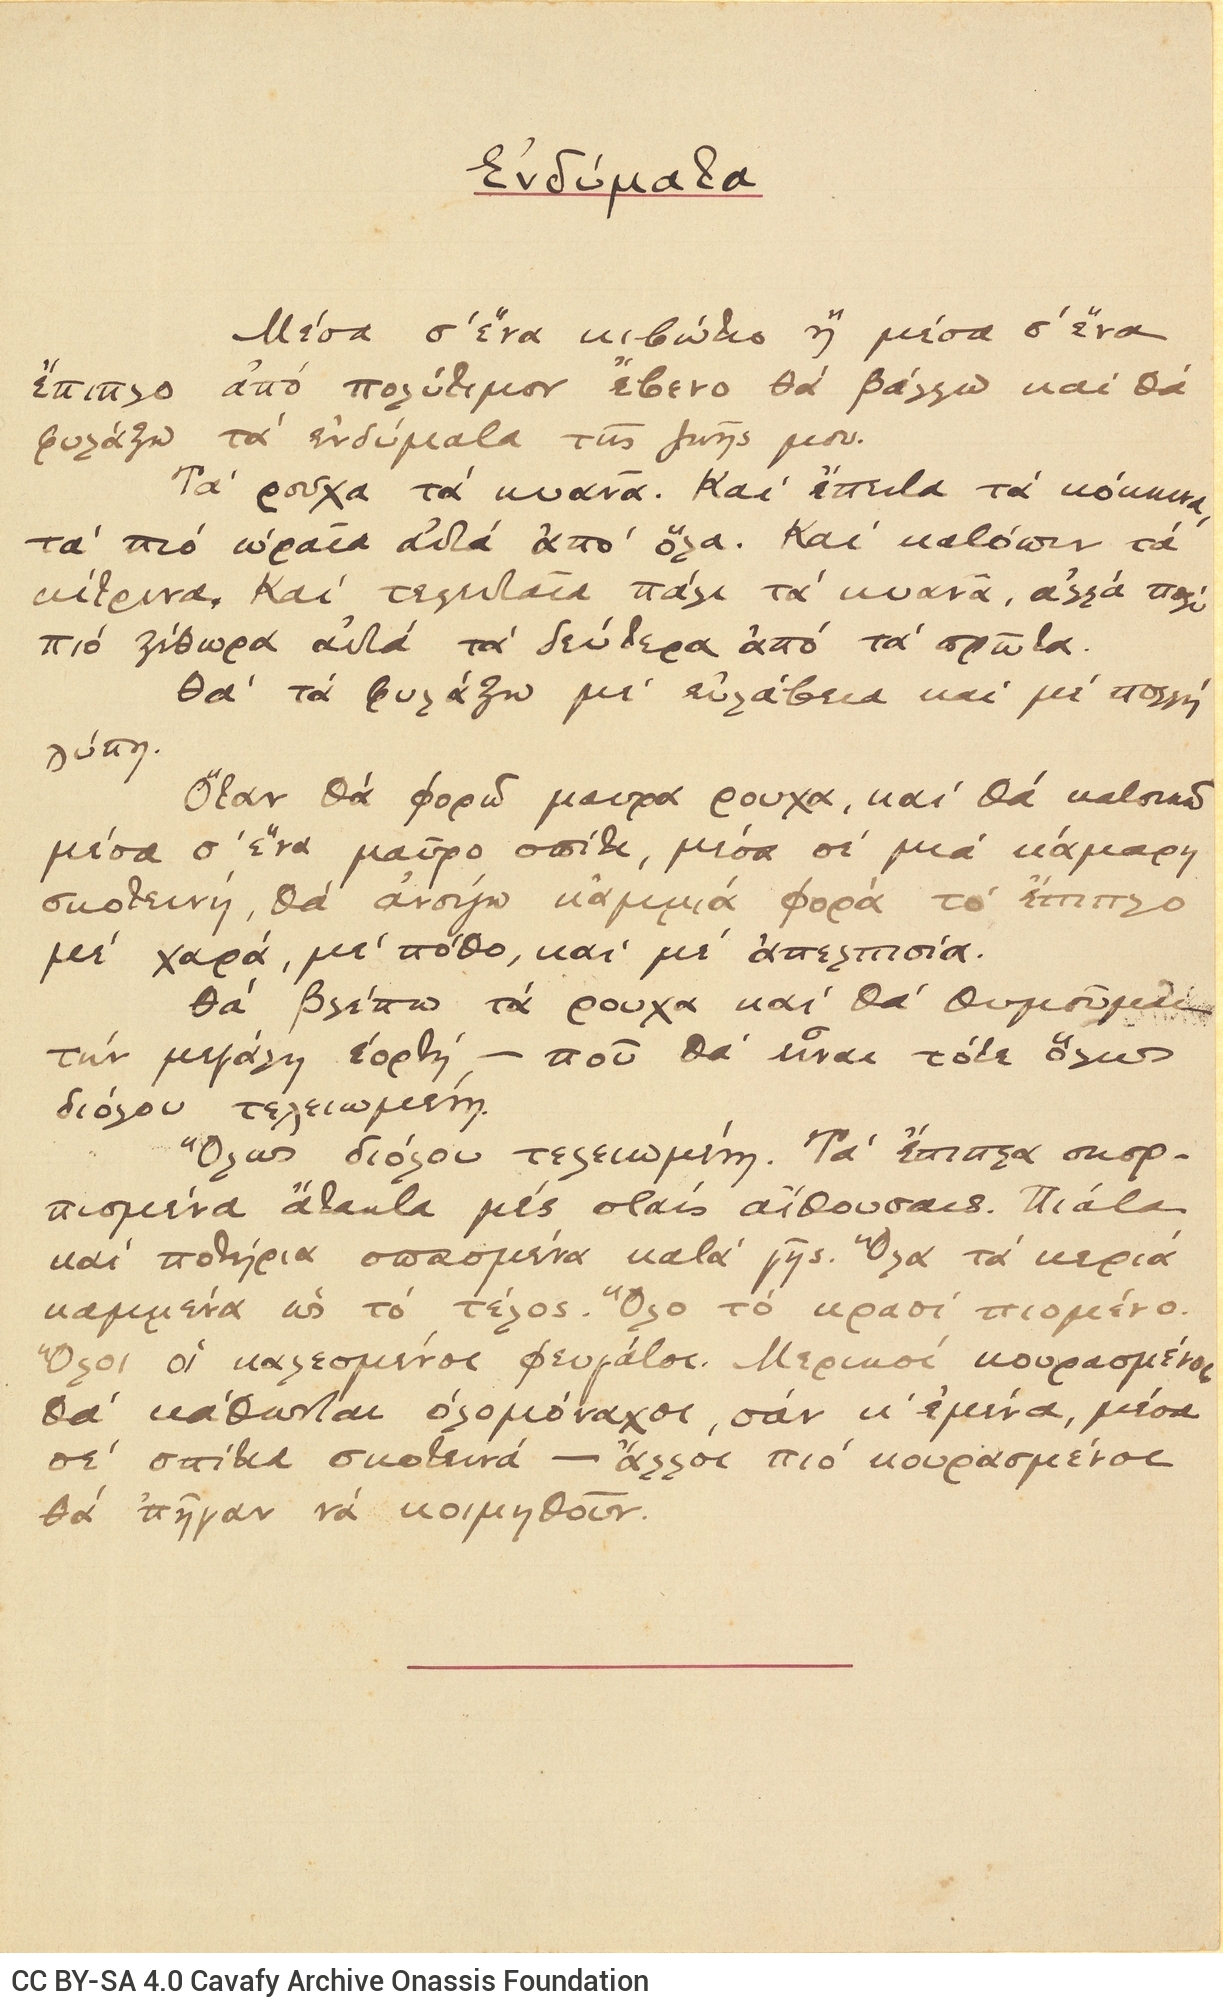 Ἐνδύματα
Μέσα σ' ἕνα κιβώτιο ἤ μέσα σ' ἕνα
ἔπιπλο ἀπό πολύτιμον ἔβενο θά βάλλω καί θά
φυλάξω τά ἐνδύματα τῆς ζωῆς μου.
Τά ροῦχα τά κυανᾶ. Καί ἔπειτα τά κόκκινα,
τά πιό ὡραῖα αὐτά ἀπό ὅλα. Καί κατόπιν τά
κίτρινα. Καί τελευταῖα πάλι τά κυανᾶ, ἀλλά πολύ
πιό ξέθωρα αὐτά τά δεύτερα ἀπό τά πρῶτα.
Θά τά φυλάξω μέ εὐλάβεια καί μέ πολλή
λύπη.
Ὅταν θά φορῶ μαυρα ρουχα, καί θά κατοικῶ
μέσα σ' ἕνα μαῦρο σπίτι, μέσα σέ μιά κάμαρη
σκοτεινή, θά ἀνοίγω κἄμμιά φορά τό ἔπιπλο
μέ χαρά, μέ πόθο, καί μέ ἀπελπισία.
Θά βλέπω τά ρουχα καί θά θυμοῦμαι
τήν μεγάλη ἑορτή — πού θά εἶναι τότε ὅλως
διόλου τελειωμένη.
Ὅλως διόλου τελειωμένη. Τά ἔπιπλα σκορ-
πισμένα ἄτακτα μές σταίς αἴθουσαις. Πιάτα
καί ποτήρια σπασμένα κατά γῆς. Ὅλα τά κεριά
καμμένα ὡς τό τέλος. Ὅλο τό κρασί πιομένο.
Ὅλοι οἱ καλεσμένοι φευγάτοι. Μερικοί κουρασμένοι
θά κάθωνται ὁλομόναχοι, σάν κ' ἐμένα, μέσα
σέ σπίτια σκοτεινά — ἄλλοι πιό κουρασμένοι
θά ἐπῆγαν νά κοιμηθοῦν.
CC BY-SA 4.0 Cavafy Archive Onassis Foundation